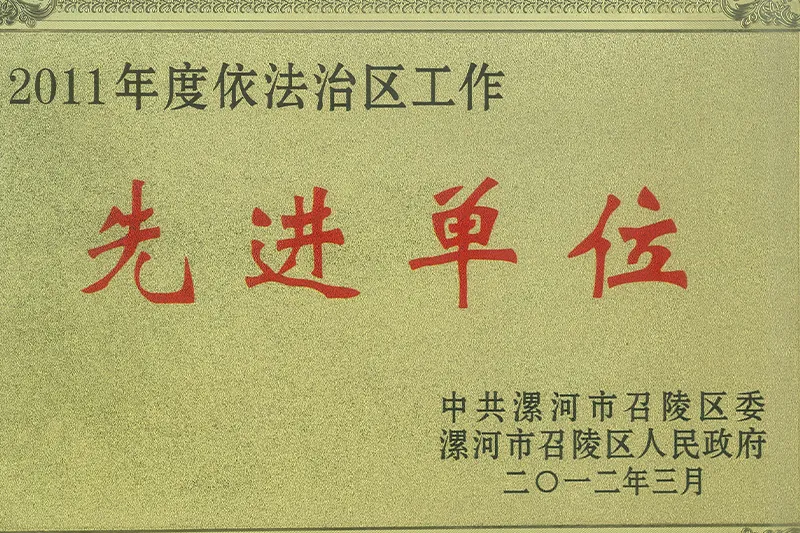 2011年度依法治区工作
先进单位
中共漯河市召陵区委
漯河市召陵区人民政府
二〇一二年三月